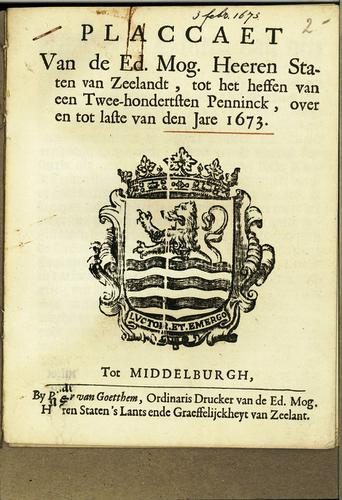 3 febr. 1673
2-
PLACCAET
Van de Ed. Mog. Heeren Sta-
ten van Zeelandt, tot het heffen van
een Twee-hondertsten Penninck, over
en tot laste van den Jare 1673.
LVCTOR.ET.EMERGO
Tot MIDDELBURGH,
By van Goetthem, Ordinaris Drucker van de Ed. Mog.
H ren Staten's Lants ende Graeffelijckheyt van Zeelant.